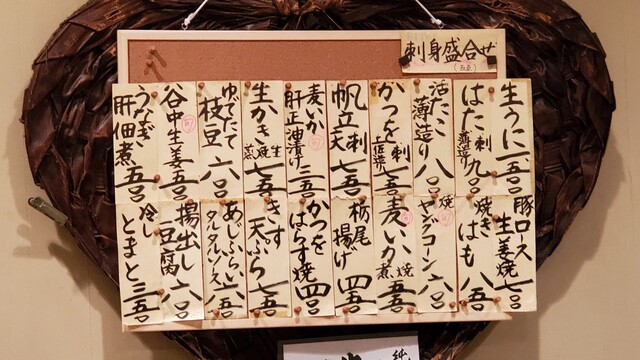 刺身盛合せ
生うに 一、五〇〇
はたこ刺 薄造り 九〇〇
活たこ 薄造り 八〇〇
かつを刺
帆立刺 天 七五〇
麦いか 肝正油漬け 三五〇
生かき 生 焼 蒸 七五〇
ゆでたて 枝豆 六〇〇
谷中生姜 五五〇
うなぎ 肝佃煮 五五〇
豚ロース 生姜焼 七〇〇
焼きはも 八五〇
焼 ヤングコーン 六〇〇
麦いか 焼 煮 五五〇
栃尾揚げ 四五〇
かつを はらす焼 四〇〇
きす 天ぷら 七五〇
あじふらい タルタルソース 六五〇
揚出し豆腐 六〇〇
冷しとまと 三五〇